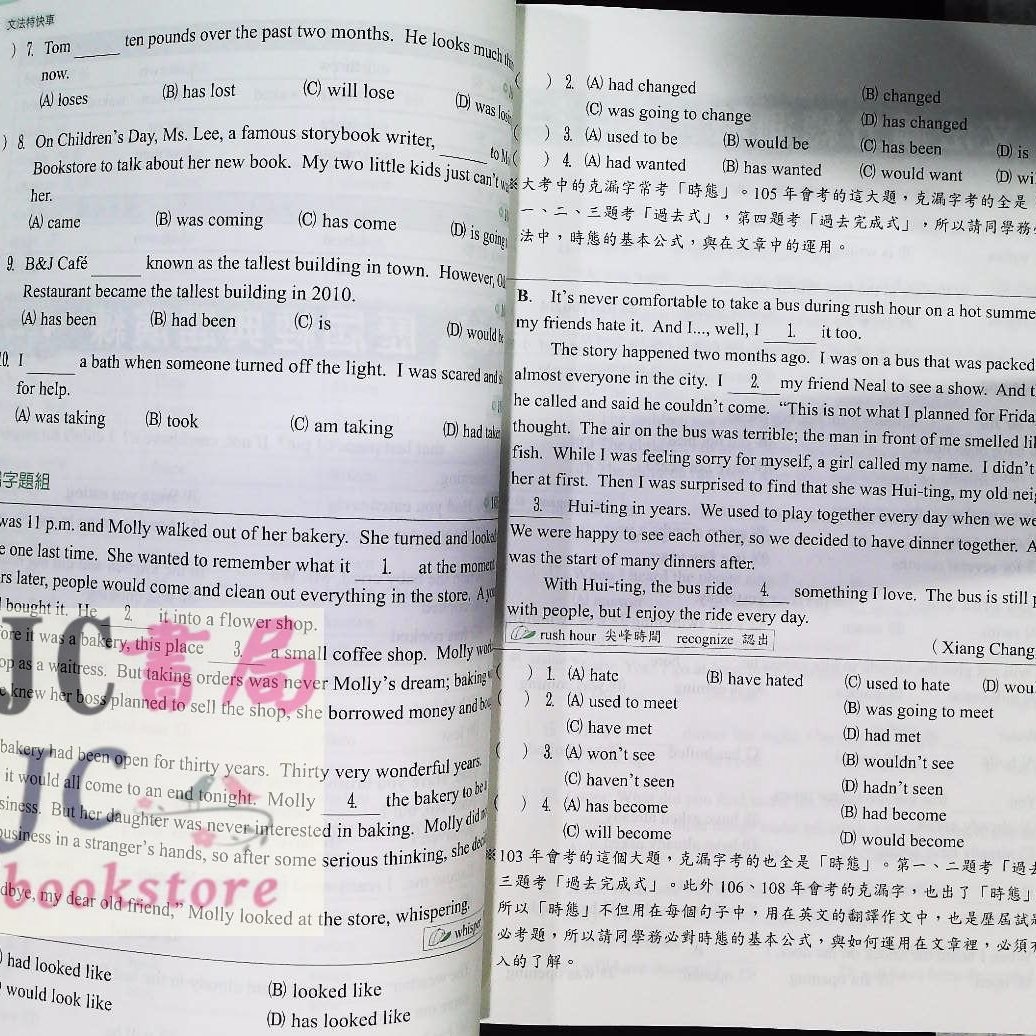 文法特快車
) 7. Tom ____ ten pounds over the past two months. He looks much
now.
(A) loses (B) has lost (C) will lose (D) was
) 8. On Children's Day, Ms. Lee, a famous storybook writer, ____ to
Bookstore to talk about her new book. My two little kids just can't
her.
(A) came (B) was coming (C) has come (D) is going
9. B&J Café ____ known as the tallest building in town. However,
Restaurant became the tallest building in 2010.
(A) has been (B) had been (C) is (D) would
10. I ____ a bath when someone turned off the light. I was scared and
for help.
(A) was taking (B) took (C) am taking (D) had
字題組
was 11 p.m. and Molly walked out of her bakery. She turned and
one last time. She wanted to remember what it 1. at the moment
later, people would come and clean out everything in the store.
bought it. He 2. it into a flower shop.
it was a bakery, this place 3. a small coffee shop. Molly
as a waitress. But taking orders was never Molly's dream; baking
knew her boss planned to sell the shop, she borrowed money and
bakery had been open for thirty years. Thirty very wonderful years.
it would all come to an end tonight. Molly 4. the bakery to be
But her daughter was never interested in baking. Molly did
business in a stranger's hands, so after some serious thinking, she
my dear old friend," Molly looked at the store, whispering.
had looked like (B) looked like
would look like (D) has looked like
JC書局
JC
bookstore
) 2. (A) had changed (B) changed
(C) was going to change (D) has changed
) 3. (A) used to be (B) would be (C) has been (D) is
) 4. (A) had wanted (B) has wanted (C) would want (D)
大考中的克漏字常考「時態」。105 年會考的這大題，克漏字考的全是
一、二、三題考「過去式」，第四題考「過去完成式」，所以請同學務
法中，時態的基本公式，與在文章中的運用。
B. It's never comfortable to take a bus during rush hour on a hot
my friends hate it. And I..., well, I 1. it too.
The story happened two months ago. I was on a bus that was packed
almost everyone in the city. I 2. my friend Neal to see a show. And
he called and said he couldn't come. "This is not what I planned for
thought. The air on the bus was terrible; the man in front of me smelled
fish. While I was feeling sorry for myself, a girl called my name. I didn't
her at first. Then I was surprised to find that she was Hui-ting, my old
3. Hui-ting in years. We used to play together every day when we
We were happy to see each other, so we decided to have dinner together.
was the start of many dinners after.
With Hui-ting, the bus ride 4. something I love. The bus is still
with people, but I enjoy the ride every day.
rush hour 尖峰時間 recognize 認出
( Xiang Chang,
) 1. (A) hate (B) have hated (C) used to hate (D)
) 2. (A) used to meet (B) was going to meet
(C) have met (D) had met
) 3. (A) won't see (B) wouldn't see
(C) haven't seen (D) hadn't seen
) 4. (A) has become (B) had become
(C) will become (D) would become
103 年會考的這個大題，克漏字考的也全是「時態」。第一、二題考「過
三題考「過去完成式」。此外 106、108 年會考的克漏字，也出了「時態」
所以「時態」不但用在每個句子中，用在英文的翻譯作文中，也是歷屆試
必考題，所以請同學務必對時態的基本公式，與如何運用在文章裡，必須
入的了解。